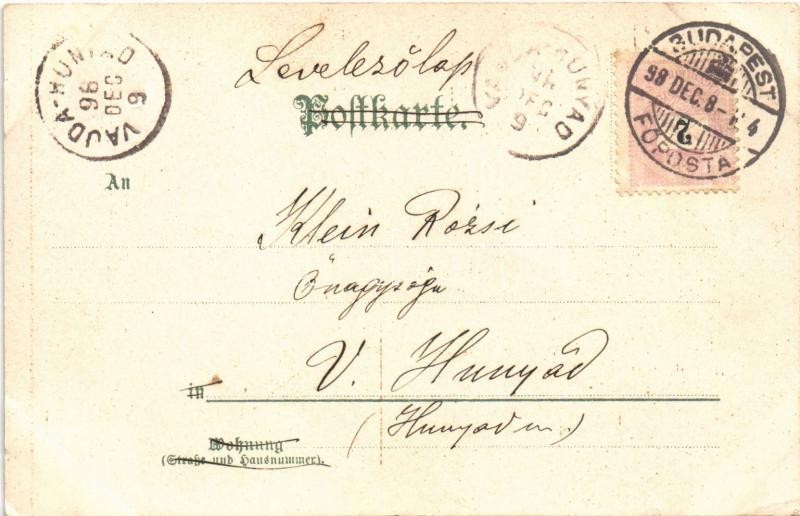 VAJDA-HUNYAD
98
DEC
9
Levelezőlap
Postkarte.
HUNYAD
DEC
9
BUDAPEST
98 DEC. 8-
4
FŐPOSTA
2
An
Klein Rózsi
Őnagysága
V. Hunyád
in
(Hunyad m.)
Wohnung
(Straße und Hausnummer).